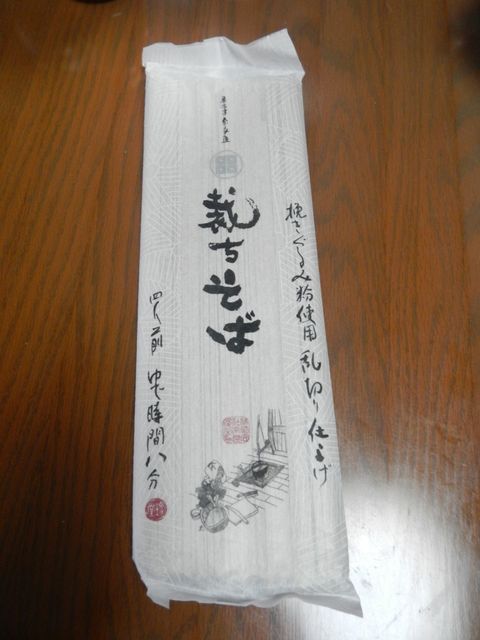 挽きぐるみ粉使用 乱切り仕上げ
裁ちそば
四人前 ゆで時間八分